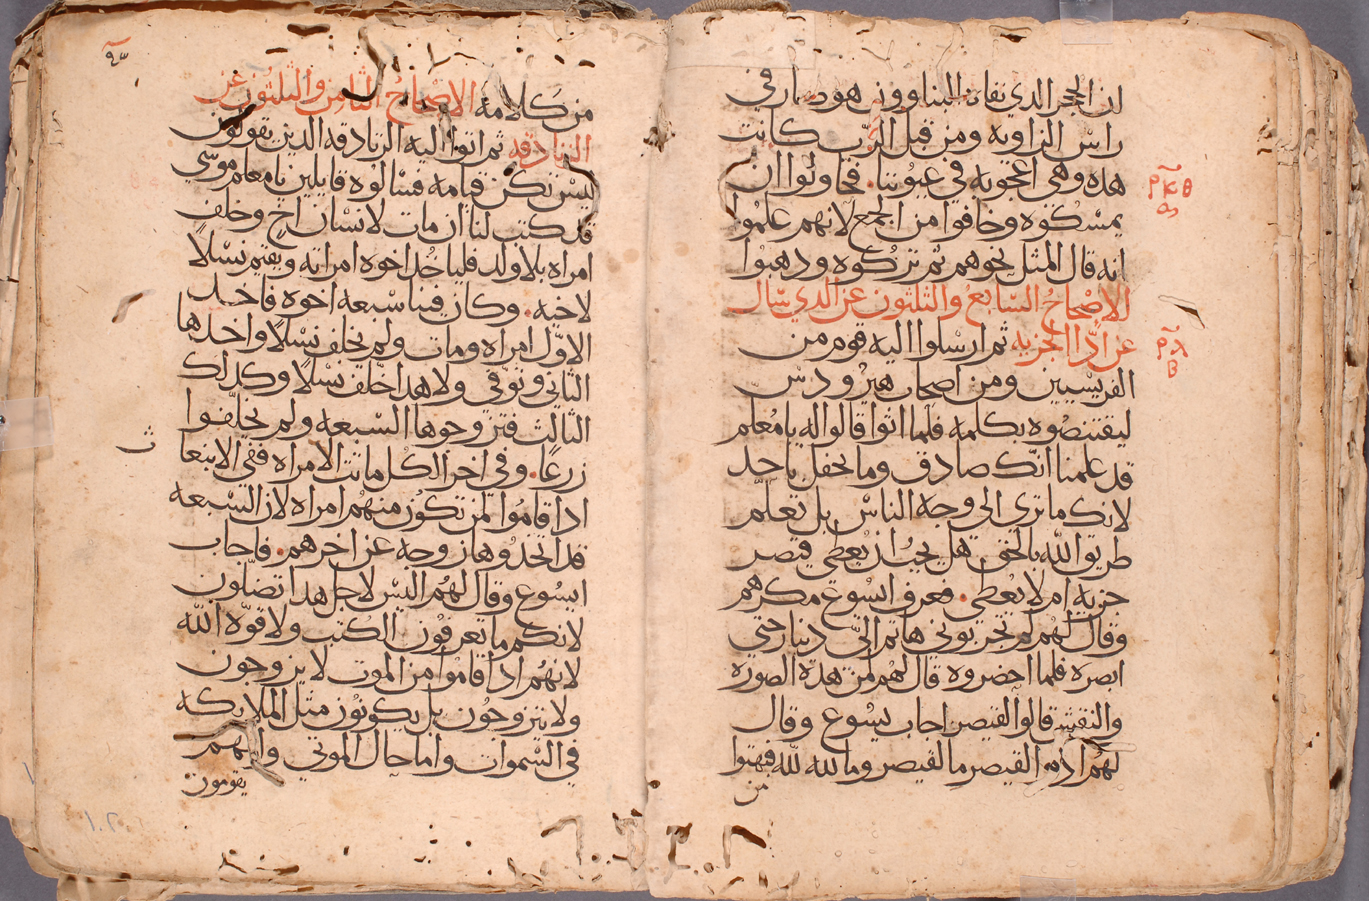 لن الحجر الدي نفاه البناوون هو صار في
راس الزاويه ومن قبل الرّب كانت
هده وهي اعجوبه في عيوننا. فحاولوا ان
يمسكوه وخافوا من الجمع لانهم علموا
انه قال المثل نحوهم ثم تركوه ودهبوا
الاصحاحُ السّابعُ والثلثون عن الدي سال
عن ادّا الجزيه ثم ارسلوا اليه قوم من
الفريسيين ومن اصحاب هيرودس
ليقتنصُوه بكلمه فلما اتوا قالوا له يامُعلم
قد علمنا انّك صادق وما تحفل باحد
لانك ما ترى الى وجه الناس بل تعلّم
طريق اللّه بالحق هل يجبُ ان يُعطي قيصر
جزيه ام لا يُعطي. فعرف ايسُوع مكرهم
وقال لهُم لم تجربوني هاتم اليّ دينار حتى
ابصره فلما احضروه قال لهُم لمن هده الصوره
والنقش قالوا لقيصر اجاب يسُوع وقال
لهُم ادوا لقيصر ما لقيصر وما للّه للّه فبهتوا
من
من كلامه الاصْحاحُ الثامن والثلثون عن
الزنادقه ثم اتوا اليه الزنادقه الدين يقولون
ليسْ تكن قيامه فسالوه قايلين يامعلم موسى
قد كتب لنا ان مات لانسان اخ وخلف
امراه بلا ولد فلياخُد اخوه امراته ويقيم نسْلاً
لاخيه. وكان فينا سبعه اخوه فاخد
الاوّل امراه ومات ولم يخلف نسْلاً واخدها
الثاني وتوفي ولا هدا خلّف نسْلاً وكدلك
الثالث فتزوجوها السّبعه ولم يخلّفوا
ث
زرعًا. وفي اخر الكل ماتت الامراه ففي الانبعا
ادا قامُوا لمن تكوُن منهُم امراه لان السّبعه
قد اتخدُوها زوجه عن اخرهم. فاجاب
ايسُوع وقال لهُم اليسْ لاجل هدا تضلّون
لانكم ما تعرفوُن الكتب ولا قوّة اللّه
لانهُم ادا قامُوا من الموت لا يزوجون
ولا يتزوجُون بل يكونوُن مثل الملايكه
في السّموات واما حال الموتى وانهم
يقومون
١٠٢